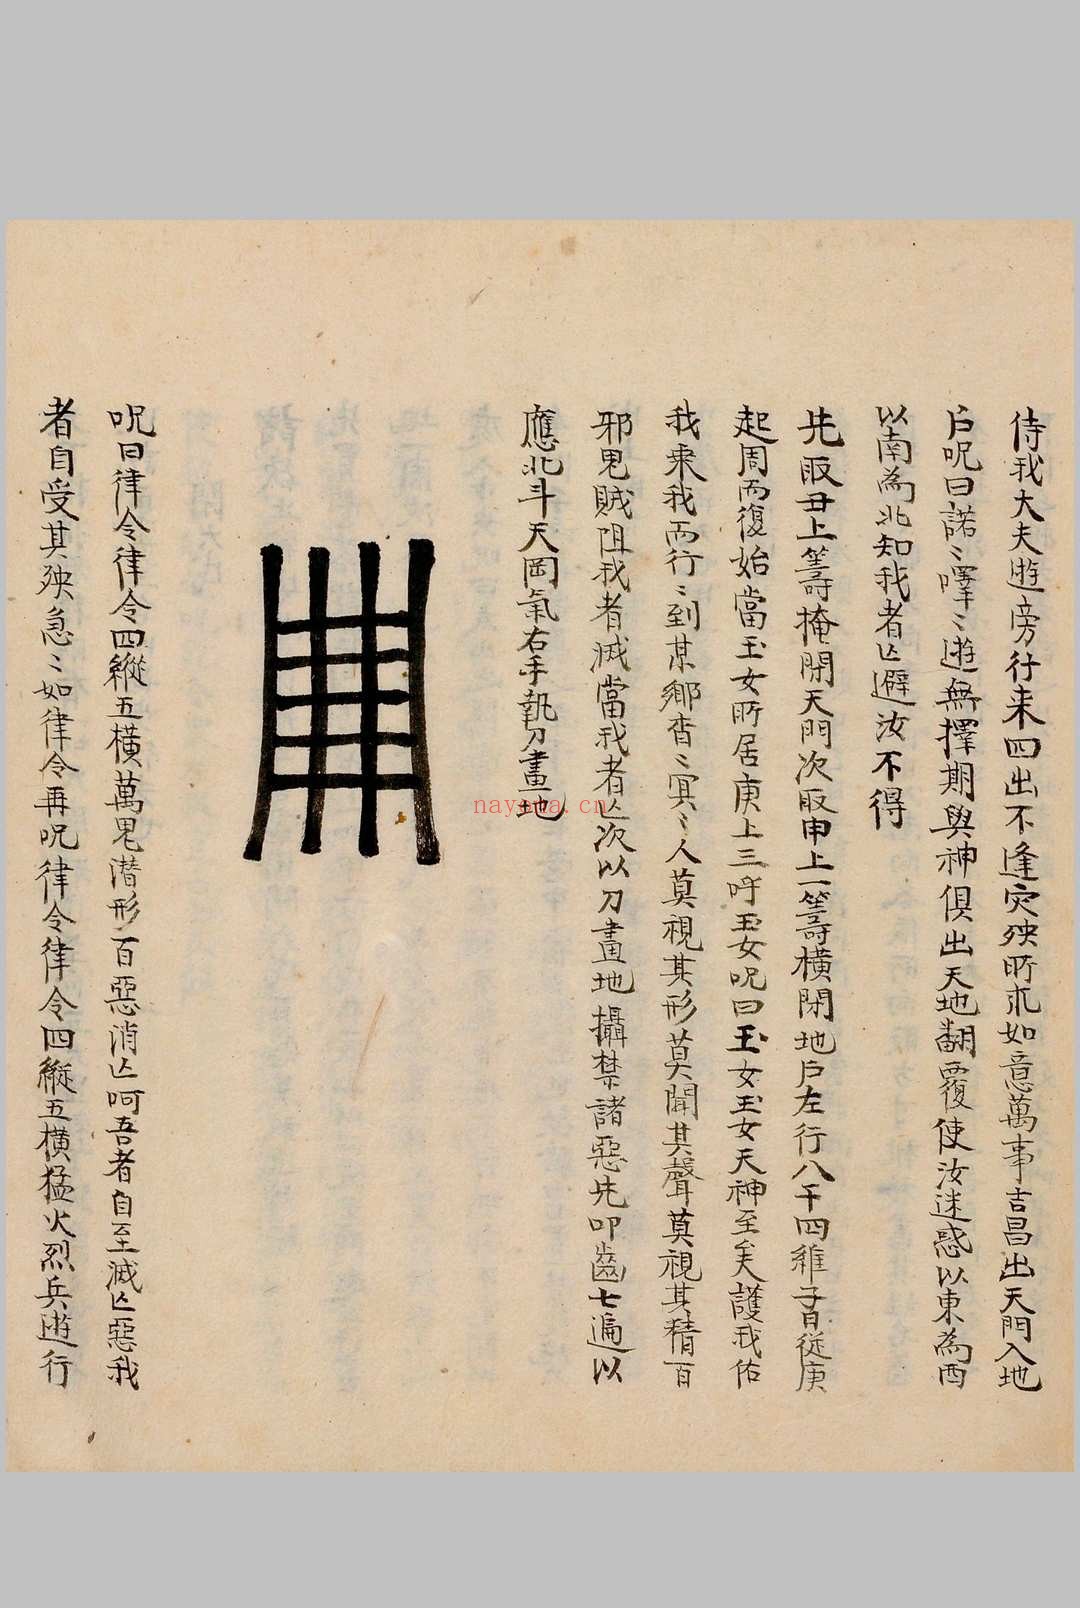 侍我大夫遊旁行来四出不逢灾殃所求如意萬事吉昌出天門入地
戶呪曰諾〻嘷〻遊無擇期與神俱出天地翻覆使汝迷惑以東為西
以南為北知我者亾避汝不得
先取丑上籌掩閉天門次取申上一籌橫閉地戶左行八干四維子日従庚
起周而復始當玉女所居庚上三呼玉女呪曰玉女玉女天神至矣護我佑
我来我而行〻到某鄉杳〻冥〻人莫視其形莫聞其聲莫視其精百
邪鬼賊阻我者滅當我者亾次以刀畫地攝禁諸惡先叩齒七遍以
應北斗天岡氣右手執刀畫地
呪曰律令律令四縱五橫萬鬼潛形百惡消亾呵吾者自至滅亾惡我
者自受其殃急〻如律令再呪律令律令四縱五橫猛火烈兵遊行
nayona.cn